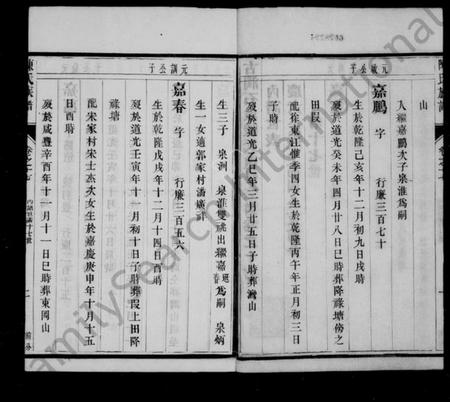 陳氏族譜
山
入繼嘉鵬次子泉淮爲嗣
元啟公子
嘉鵬 字 行廉三百七十
生於乾隆己亥年十二月初九日戌時
歿於道光癸未年四月廿八日巳時葬降祿塘傍之
田叚
配徐東江惟季四女生於乾隆丙午年正月初三日
歿於道光乙巳年三月廿五日子時葬灣山
生三子 泉洲 泉淮雙祧出繼嘉 爲嗣 泉炳
生一女適郭家村潘
元訓公子
嘉春 字 行廉三百五六
生於乾隆戊戌年十二月十四日酉時
歿於道光壬寅年十一月初十日子時葬叚上田降
祿塘
配宋家村宋士杰次女生於嘉慶庚申年十月十五
日酉時
歿於咸豐辛酉年十一月十一日巳時葬東岡山
陳氏族譜
卷之十
FamilySearch International